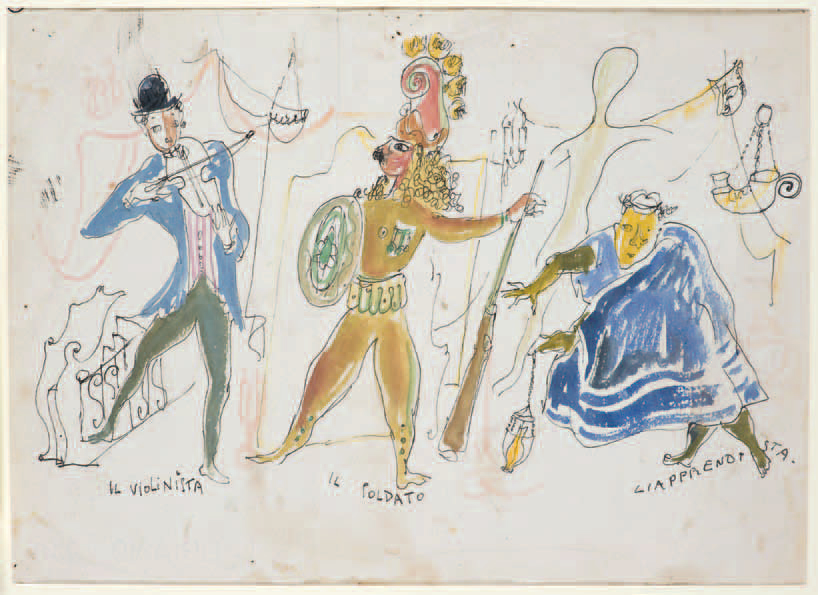 IL VIOLINISTA
IL SOLDATO
L'APPRENDISTA.